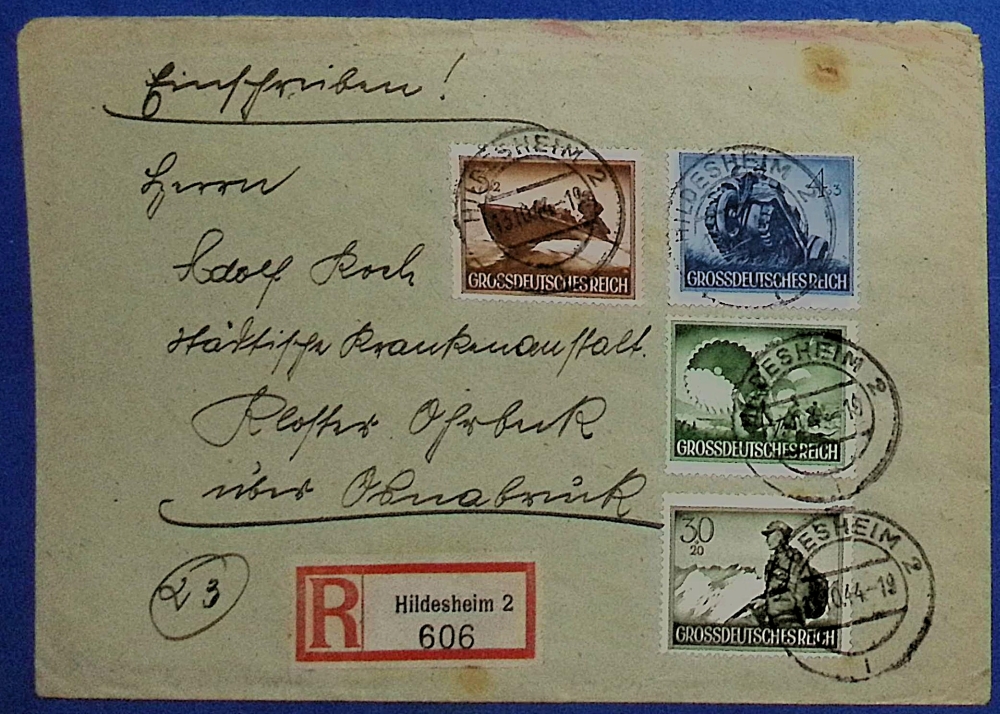 Einschreiben!
Herrn
Adolf Koch
städtische Krankenanstalt.
Kloster Ohrbeck
über Osnabrück
23
R
Hildesheim 2
606
3
2
GROSSDEUTSCHES REICH
HILDESHEIM 2
13.10.44-19
4
3
GROSSDEUTSCHES REICH
HILDESHEIM 2
GROSSDEUTSCHES REICH
HILDESHEIM 2
-19
30
20
GROSSDEUTSCHES REICH
HILDESHEIM 2
10.44-19